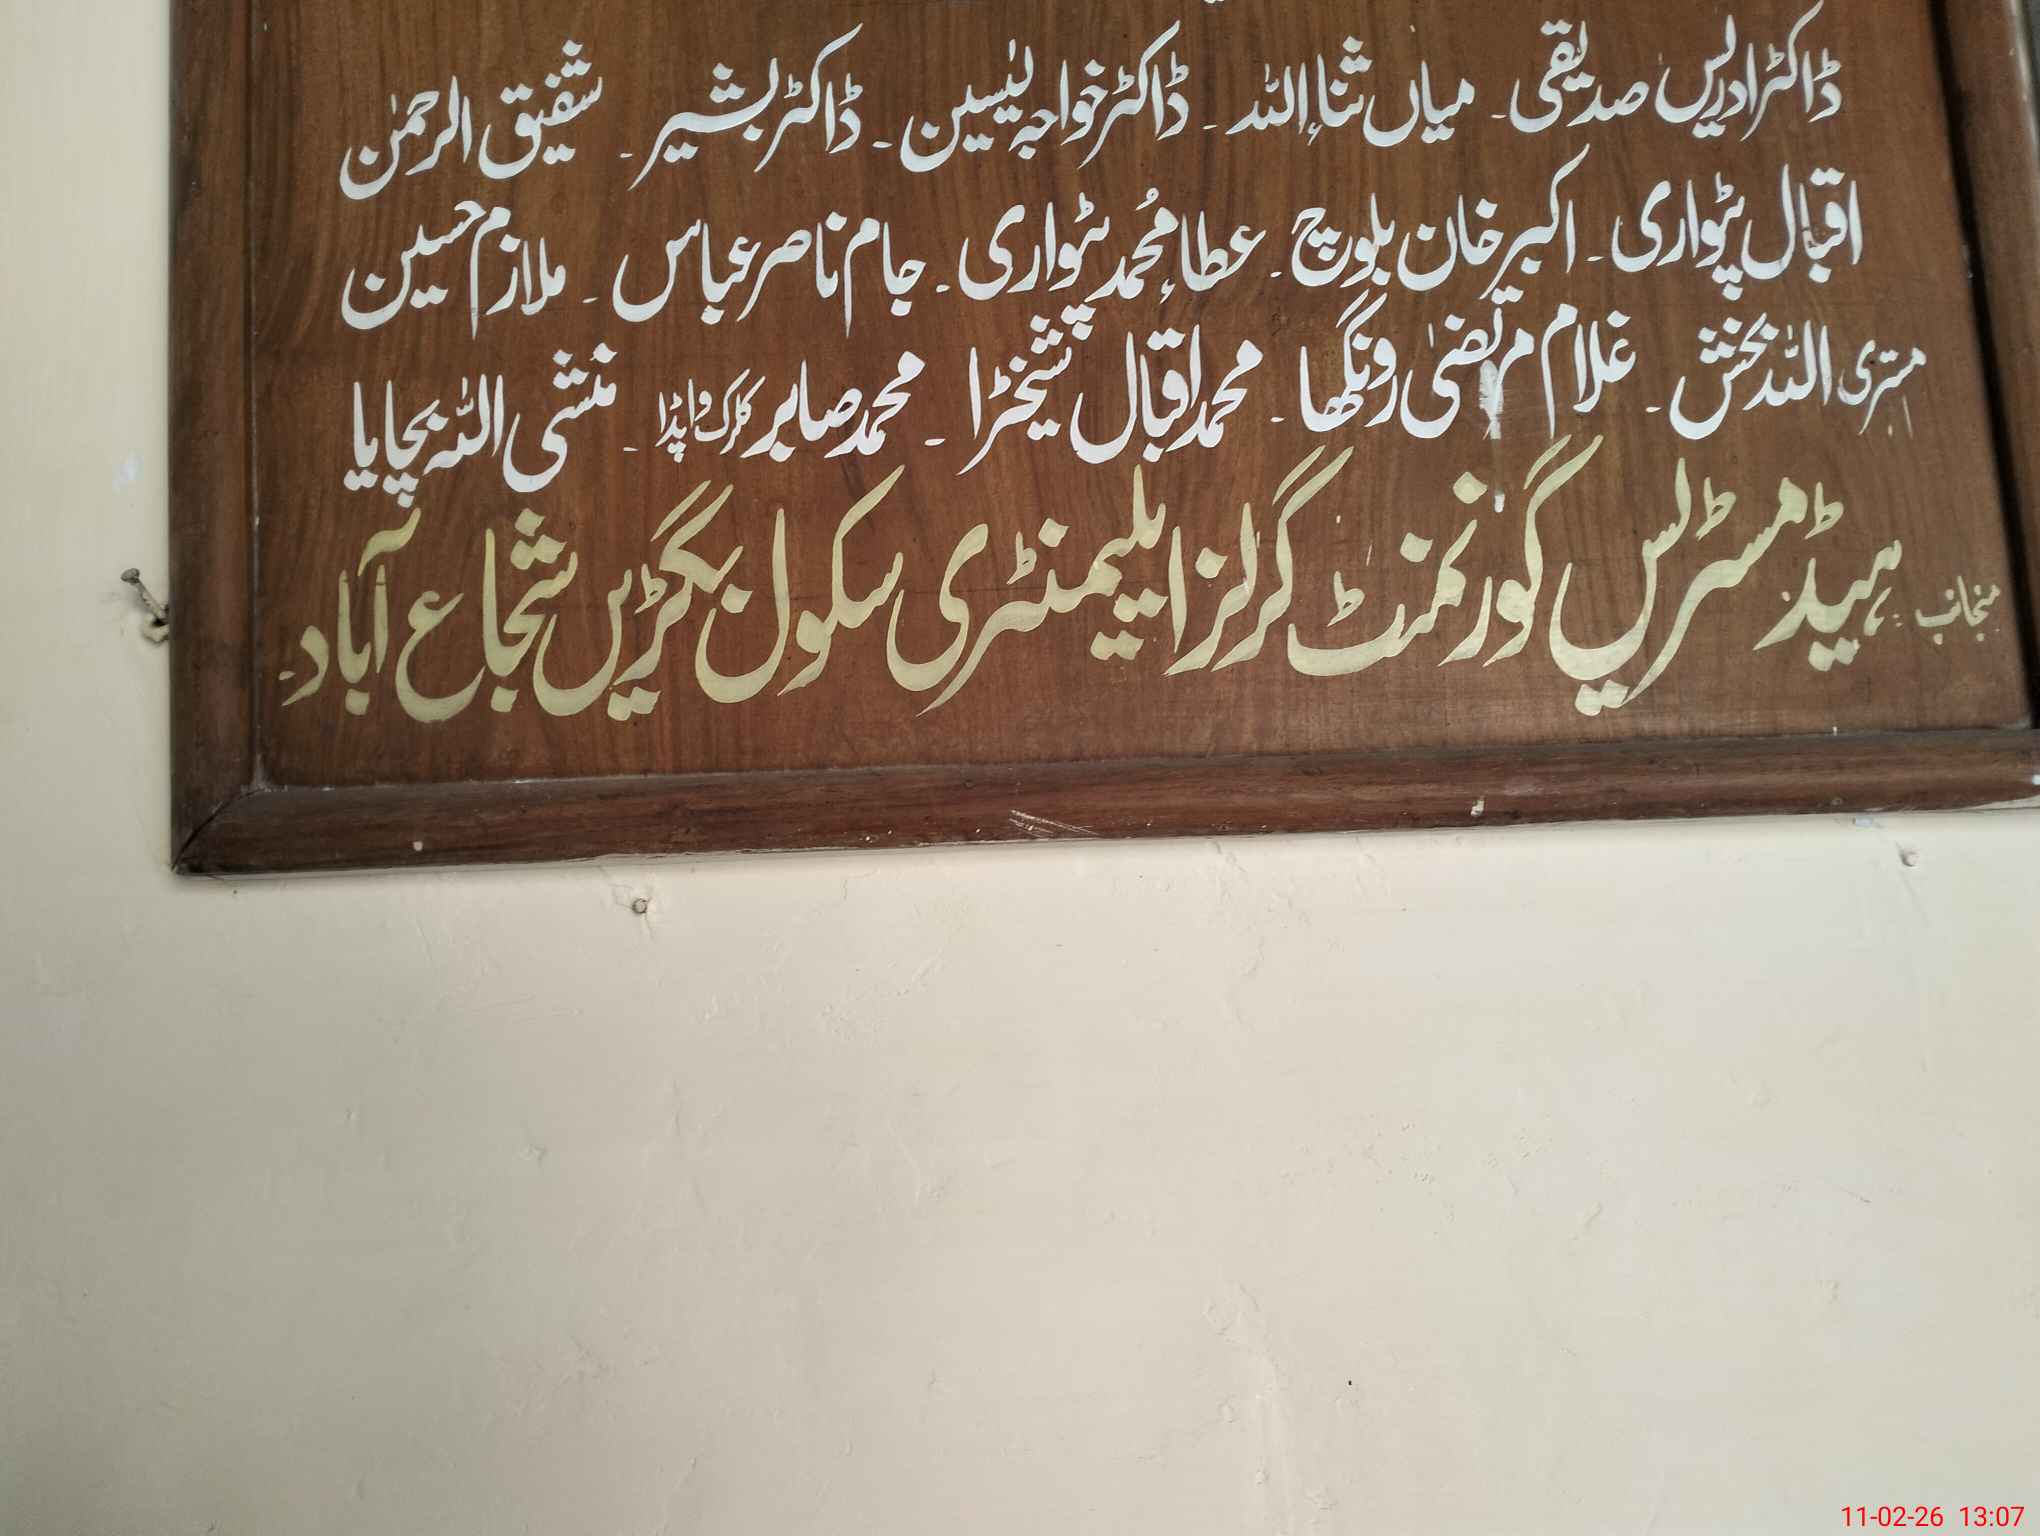 ڈاکٹر ادریس صدیقی ۔ میاں ثناءاللہ ۔ ڈاکٹر خواجہ یٰسین ۔ ڈاکٹر بشیر ۔ شفیق الرحمٰن
اقبال پٹواری ۔ اکبر خان بلوچ ۔ عطاء محمد پٹواری ۔ جام ناصر عباس ۔ ملازم حسین
مستری اللہ بخش ۔ غلام مرتضیٰ رونگھا ۔ محمد اقبال شیخڑا ۔ محمد صابر کلرک واپڈا ۔ منشی اللہ بچایا
منجانب : ہیڈ مسٹریس گورنمنٹ گرلز ایلیمنٹری سکول بگڑیں شجاع آباد ۔
11-02-26 13:07